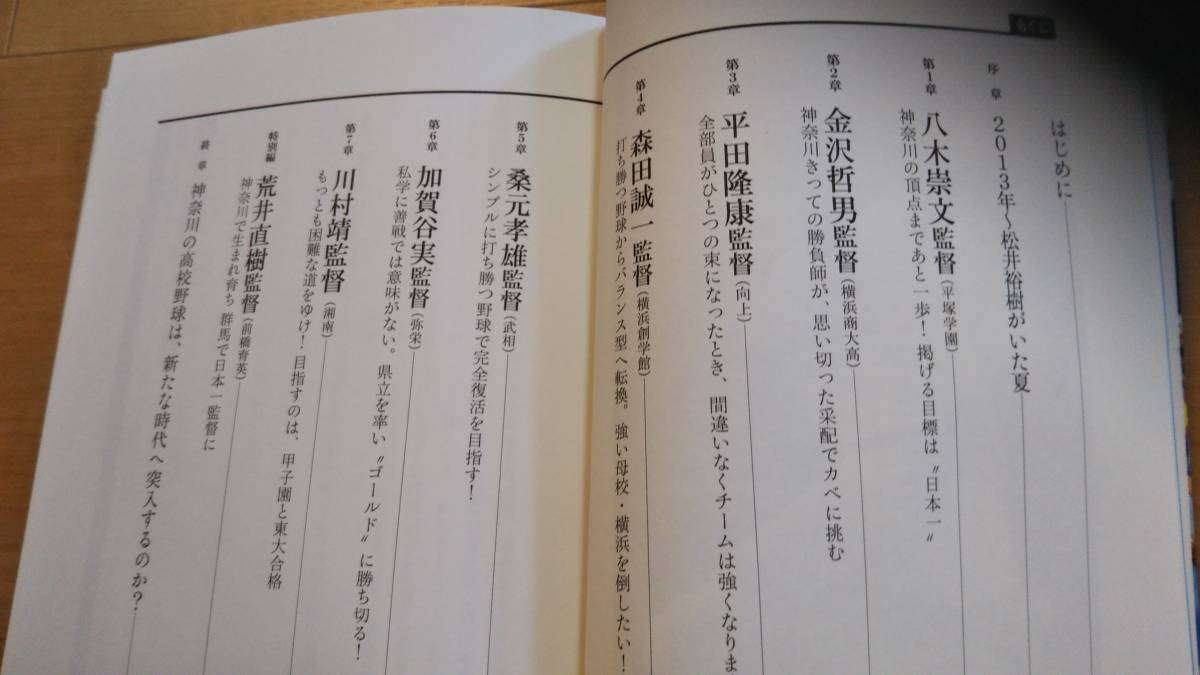 もくじ
はじめに
序章 2013年〜松井裕樹がいた夏
第1章 八木崇文監督(平塚学園)
神奈川の頂点まであと一歩！掲げる目標は〝日本一〟
第2章 金沢哲男監督(横浜商大高)
神奈川きっての勝負師が、思い切った采配でカベに挑む
第3章 平田隆康監督(向上)
全部員がひとつの束になったとき、間違いなくチームは強くなりま
第4章 森田誠一監督(横浜創学館)
打ち勝つ野球からバランス型へ転換。強い母校・横浜を倒したい！
第5章 桑元孝雄監督(武相)
シンプルに打ち勝つ野球で完全復活を目指す！
第6章 加賀谷実監督(弥栄)
私学に善戦では意味がない。県立を率い〝ゴールド〟に勝ち切る！
第7章 川村靖監督(湘南)
もっとも困難な道をゆけ！目指すのは、甲子園と東大合格
特別編 荒井直樹監督(前橋育英)
神奈川で生まれ育ち 群馬で日本一監督に
終章 神奈川の高校野球は、新たな時代へ突入するのか？